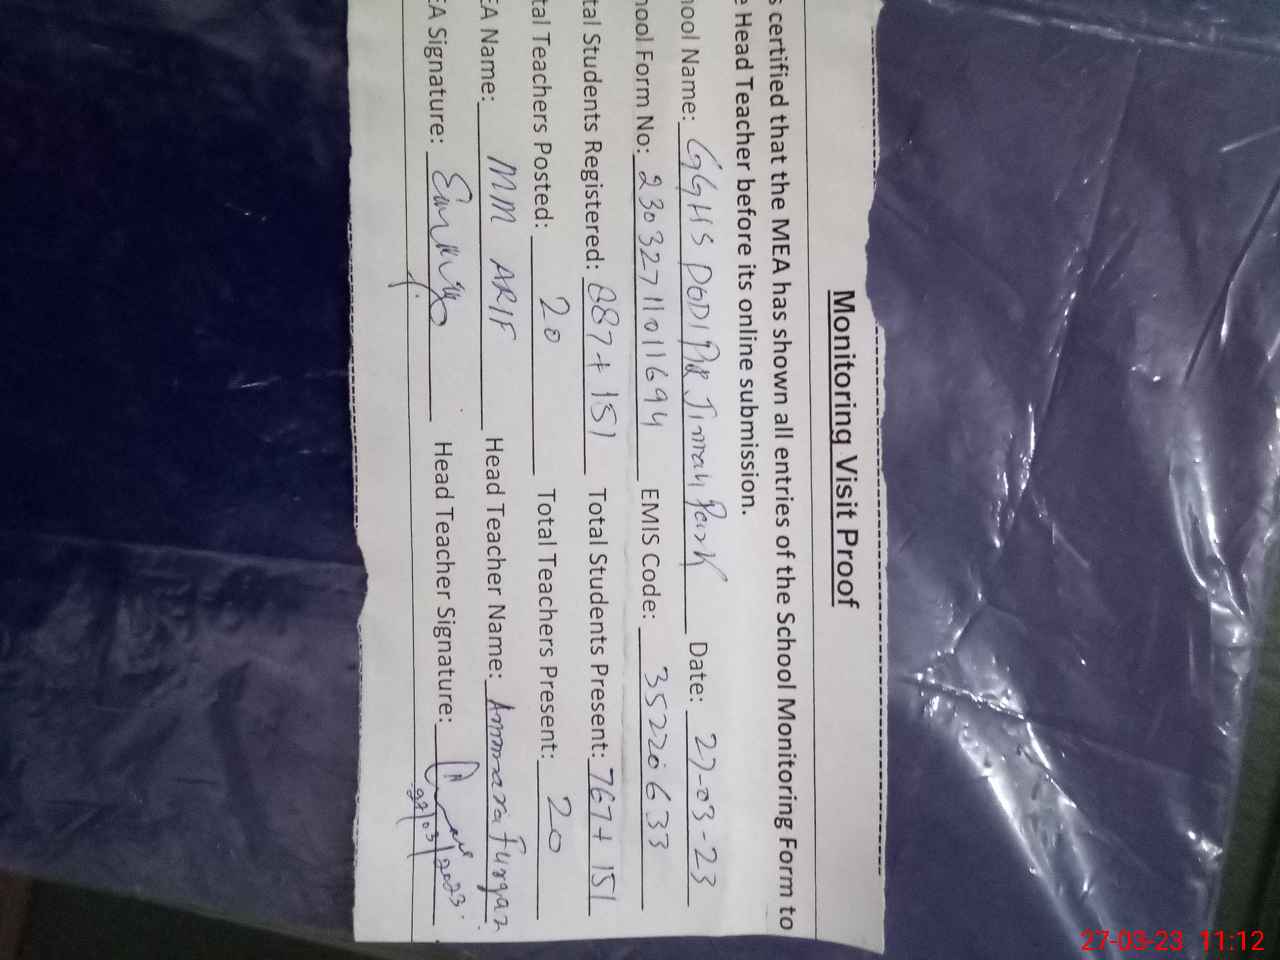 Monitoring Visit Proof
s certified that the MEA has shown all entries of the School Monitoring Form to
e Head Teacher before its online submission.
hool Name: GGHS DODI Pir Jinnah Park Date: 27-03-23
hool Form No: 230327110111694 EMIS Code: 35220633
tal Students Registered: 887+151 Total Students Present: 767+151
tal Teachers Posted: 20 Total Teachers Present: 20
EA Name: MM ARIF Head Teacher Name: Ammara Furqan
EA Signature: Head Teacher Signature:
27/03/2023
27-03-23 11:12